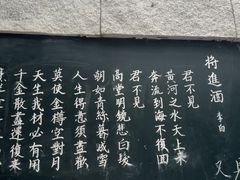 將進酒 李白
君不見
黃河之水天上來
奔流到海不復回
君不見
高堂明鏡悲白髮
朝如青絲暮成雪
人生得意須盡歡
莫使金樽空對月
天生我材必有用
千金散盡還復來
又